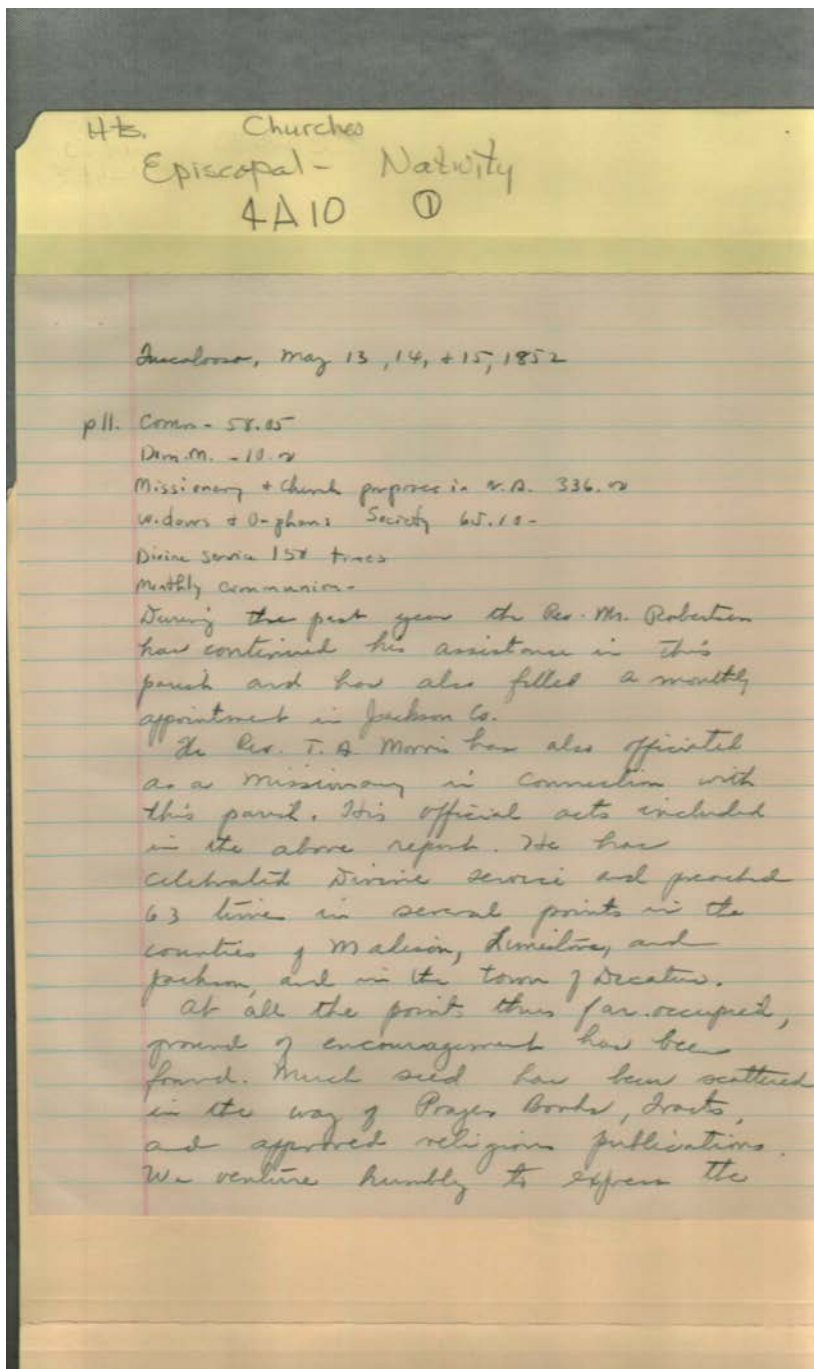 Hts. Churches
Episcopal - Nativity
4A10 ①
Tuscaloosa, May 13, 14, + 15, 1852
p11. Comm - 58.05
Dom. M. - 10.00
Missionary + Church purposes in N.A. 336.00
Widows + Orphans Society 65.10 -
Divine service 158 times
Monthly communion -
During the past year the Rev. Mr. Robertson
has continued his assistance in this
parish and has also filled a monthly
appointment in Jackson Co.
The Rev. T. A. Morris has also officiated
as a missionary in connection with
this parish. His official acts included
in the above report. He has
celebrated Divine service and preached
63 time in several points in the
counties of Madison, Limestone, and
Jackson, and in the town of Decatur.
At all the points thus far occupied,
ground of encouragement has been
found. Much seed has been scattered
in the way of Prayer Books, Tracts,
and approved religious publications.
We venture humbly to express the